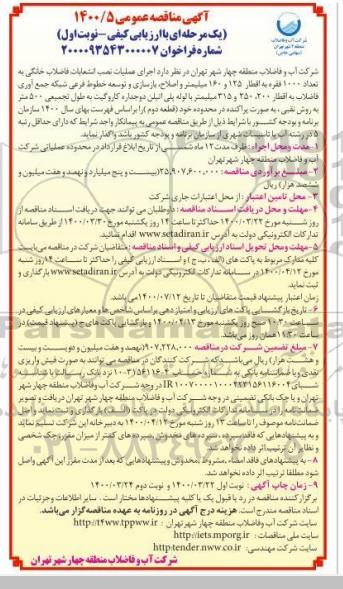 آگهی مناقصه عمومی ۱۴۰۰/۵
(یک مرحله‌ای با ارزیابی کیفی - نوبت اول)
شماره فراخوان ۲۰۰۰۰۹۳۵۴۳۰۰۰۰۰۷
شرکت آب و فاضلاب
منطقه ۴ شهر تهران
(سهامی خاص)
شرکت آب و فاضلاب منطقه چهار شهر تهران در نظر دارد اجرای عملیات نصب انشعابات فاضلاب خانگی به
تعداد ۱۰۰۰ فقره به اقطار ۱۲۵ و ۱۶۰ میلیمتر و اصلاح، بازسازی و توسعه خطوط فرعی شبکه جمع آوری
فاضلاب به اقطار ۲۰۰، ۲۵۰ و ۳۱۵ میلیمتر با لوله پلی اتیلن دوجداره کاروگیت به طول تخمینی ۵۰۰ متر
به روش نقبی، به صورت پراکنده در محدوده خود (قطعه دوم) را براساس فهرست بهای سال ۱۴۰۰ سازمان
برنامه و بودجه کشور با شرایط ذیل از طریق مناقصه عمومی به پیمانکار واجد شرایط که دارای حداقل رتبه
۵ در رشته آب یا تاسیسات شهری از سازمان برنامه و بودجه کشور باشد واگذار نماید.
۱- مدت و محل اجراء: ظرف مدت ۱۲ ماه شمسی از تاریخ ابلاغ قرارداد در محدوده عملیاتی شرکت
آب و فاضلاب منطقه چهار شهر تهران
۲- مبلغ برآوردی مناقصه: ۲۵,۹۰۷,۶۰۰,۰۰۰ (بیست و پنج میلیارد و نهصد و هفت میلیون و
ششصد هزار) ریال
۳- محل تامین اعتبار: از محل اعتبارات جاری شرکت
۴- مهلت و محل دریافت اسناد مناقصه: داوطلبان می توانند جهت دریافت اسناد مناقصه از
روز شنبه مورخ ۱۴۰۰/۰۳/۲۲ حداکثر تا ساعت ۱۴ روز یکشنبه مورخ ۱۴۰۰/۰۳/۳۰ از طریق سامانه
تدارکات الکترونیکی دولت به آدرس www.setadiran.ir اقدام نمایند.
۵- مهلت و محل تحویل اسناد ارزیابی کیفی و اسناد مناقصه: متقاضیان شرکت در مناقصه می‌بایست
کلیه مدارک مربوط به پاکت های (الف، ب، ج) و اسناد ارزیابی کیفی را حداکثر تا ساعت ۱۴ روز شنبه
مورخ ۱۴۰۰/۰۴/۱۲ در سامانه تدارکات الکترونیکی دولت به آدرس www.setadiran.ir بارگذاری و
ثبت نمایند.
زمان اعتبار پیشنهاد قیمت متقاضیان تا تاریخ ۱۴۰۰/۰۷/۱۲ می باشد.
۶- تاریخ بازگشایی پاکت های ارزیابی و امتیاز دهی براساس شاخص ها و معیارهای ارزیابی کیفی در
ساعت ۱۰:۳۰ صبح روز یکشنبه مورخ ۱۴۰۰/۰۴/۱۳ و بازگشایی پاکت های ج (پیشنهاد قیمت) در
ساعت ۱۱:۳۰ همان روز می باشد.
۷- مبلغ تضمین شرکت در مناقصه ۹۰۷,۲۲۸,۰۰۰ (نهصد و هفت میلیون و دویست و بیست
و هشت هزار) ریال می‌باشد که شرکت کنندگان در مناقصه می توانند به صورت فیش واریزی
تهران و یا چک بانکی تضمینی در وجه شرکت آب و فاضلاب منطقه چهار شهر
ضمانتنامه موصوف را تا ساعت ۱۳ روز شنبه مورخ ۱۴۰۰/۰۴/۱۲ به دبیرخانه این شرکت تسلیم نماید
و نظایر آن ترتیب اثر داده نخواهد شد.
۸- به پیشنهادهای فاقد امضاء، مشروط، مخدوش و پیشنهادهایی که بعد از مدت مقرر این آگهی واصل
شود مطلقا ترتیب اثر داده نخواهد شد.
۹- زمان چاپ آگهی: نوبت اول ۱۴۰۰/۰۳/۲۲ و نوبت دوم ۱۴۰۰/۰۳/۲۳
برگزارکننده مناقصه در رد یا قبول یک یا کلیه پیشنهادها مختار است. سایر اطلاعات و جزئیات در
اسناد مناقصه مندرج است. هزینه درج آگهی در روزنامه به عهده مناقصه گزار می‌باشد.
سایت شرکت آب و فاضلاب منطقه چهار شهر تهران: http://t4ww.tppww.ir
سایت ملی مناقصات: http://iets.mporg.ir
سایت شرکت مهندسی: http:tender.nww.co.ir
شرکت آب و فاضلاب منطقه چهار شهر تهران